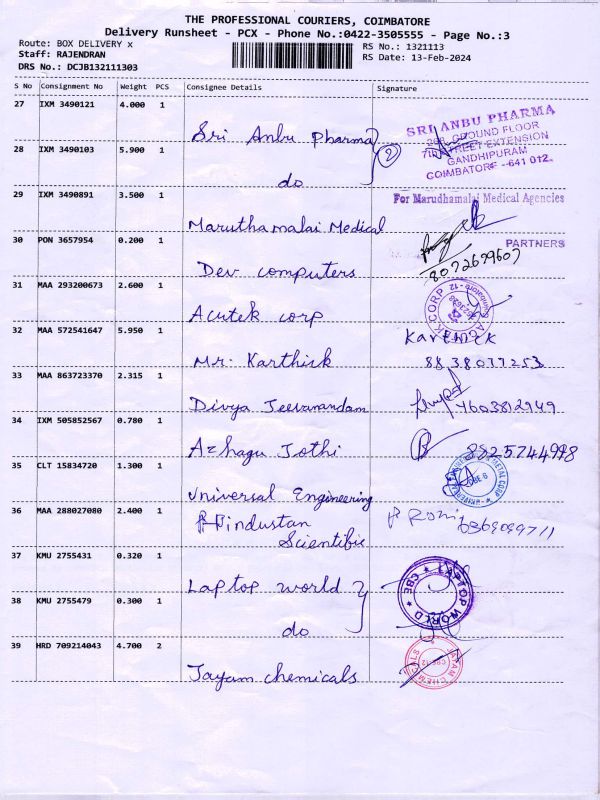 THE PROFESSIONAL COURIERS, COIMBATORE
Delivery Runsheet - PCX - Phone No.:0422-3505555 - Page No.:3
Route: BOX DELIVERY x
RS No.: 1321113
Staff: RAJENDRAN
RS Date: 13-Feb-2024
DRS No.: DCJB132111303
S No Consignment No Weight PCS Consignee Details Signature
27 IXM 3490121 4.000 1 Sri Anbu pharma
SRI ANBU PHARMA
GROUND FLOOR
STREET EXTENSION
GANDHIPURAM
COIMBATORE - 641 012.
28 IXM 3490103 5.900 1 do 2
29 IXM 3490891 3.500 1 Maruthamalai Medical
For Marudhamalai Medical Agencies
PARTNERS
30 PON 3657954 0.200 1 Dev computers
31 MAA 293200673 2.600 1 Acutek corp
32 MAA 572541647 5.950 1 Mr. Karthick
8838037253
33 MAA 863723370 2.315 1 Divya Jeevanandam
34 IXM 505852567 0.780 1 Azhagu Jothi
35 CLT 15834720 1.300 1 Universal Engineering
36 MAA 288027080 2.400 1 Hindustan
Scientific
37 KMU 2755431 0.320 1 Laptop world
LAPTOP WORLD * CBE *
38 KMU 2755479 0.300 1 do
39 HRD 709214043 4.700 2 Jayam chemicals